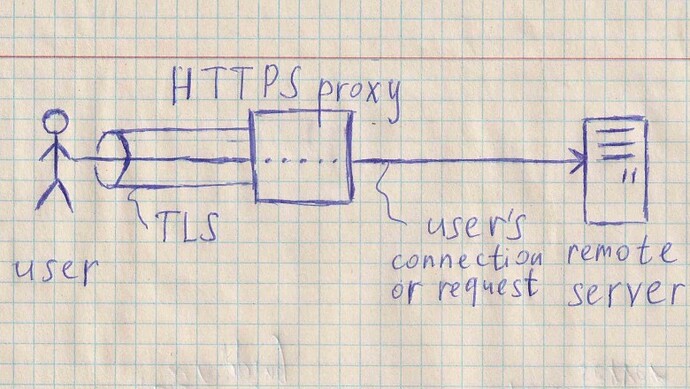 HTTPS proxy
TLS
user
user's
connection
or request
remote
server